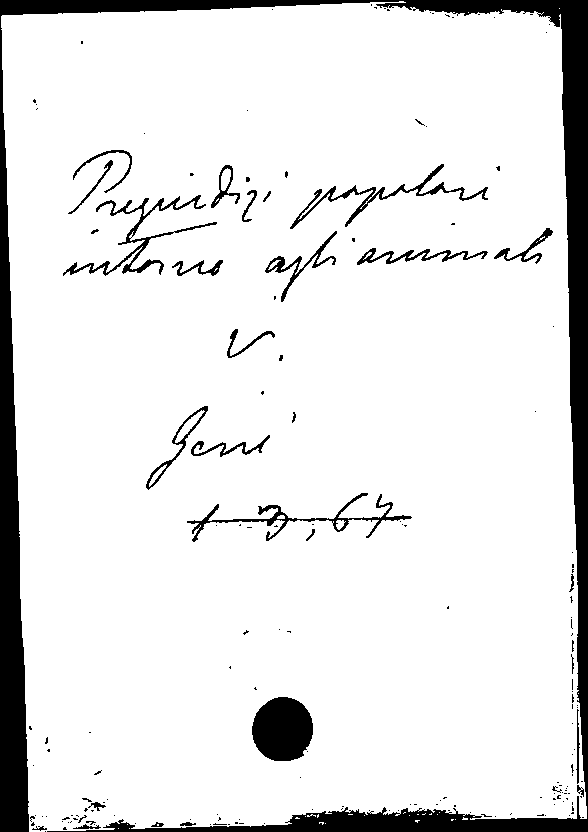 Pregiudizi popolari
intorno agli animali
V.
Gené
1 3, 67